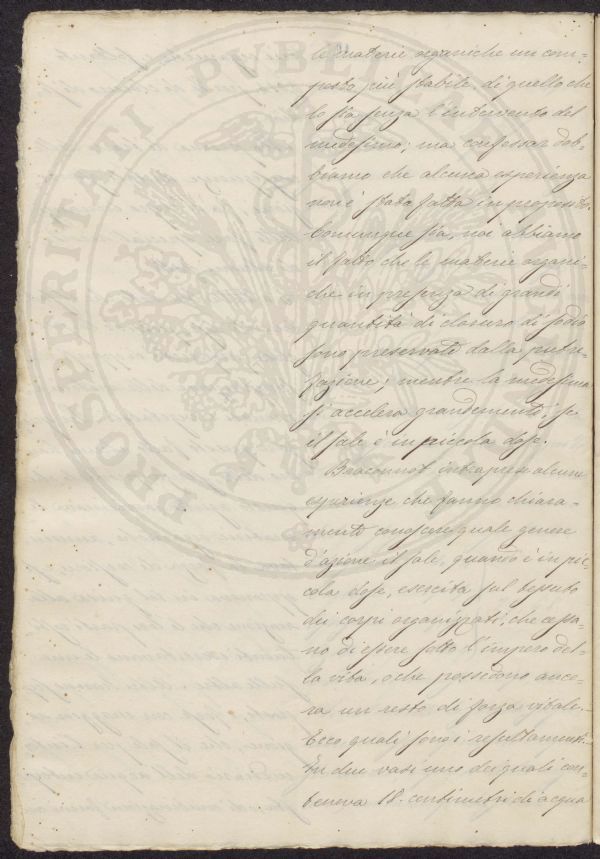 le materie organiche un com=
posto più stabile, di quello che
lo sia senza l'intervento del
medesimo; ma confessar dob=
biamo che alcuna esperienza
non è stata fatta in proposito.
Comunque sia, noi abbiamo
il fatto che le materie organi=
che in presenza di grandi
quantità di cloruro di sodio
sono preservate dalla putre=
fazione; mentre la medesima
si accelera grandemente, se
il sale è in piccola dose.
Braconnot intraprese alcune
esperienze che fanno chiara=
mente conoscere quale genere
d'azione il sale, quando è in pic=
cola dose, esercita sul tessuto
dei corpi organizzati, che cessa=
no di essere sotto l'impero del=
la vita, o che possedono anco=
ra un resto di forza vitale.
Ecco quali sono i resultamenti.
In due vasi uno dei quali con=
teneva 18. centimetri di acqua
PROSPERITATI PVBLICAE